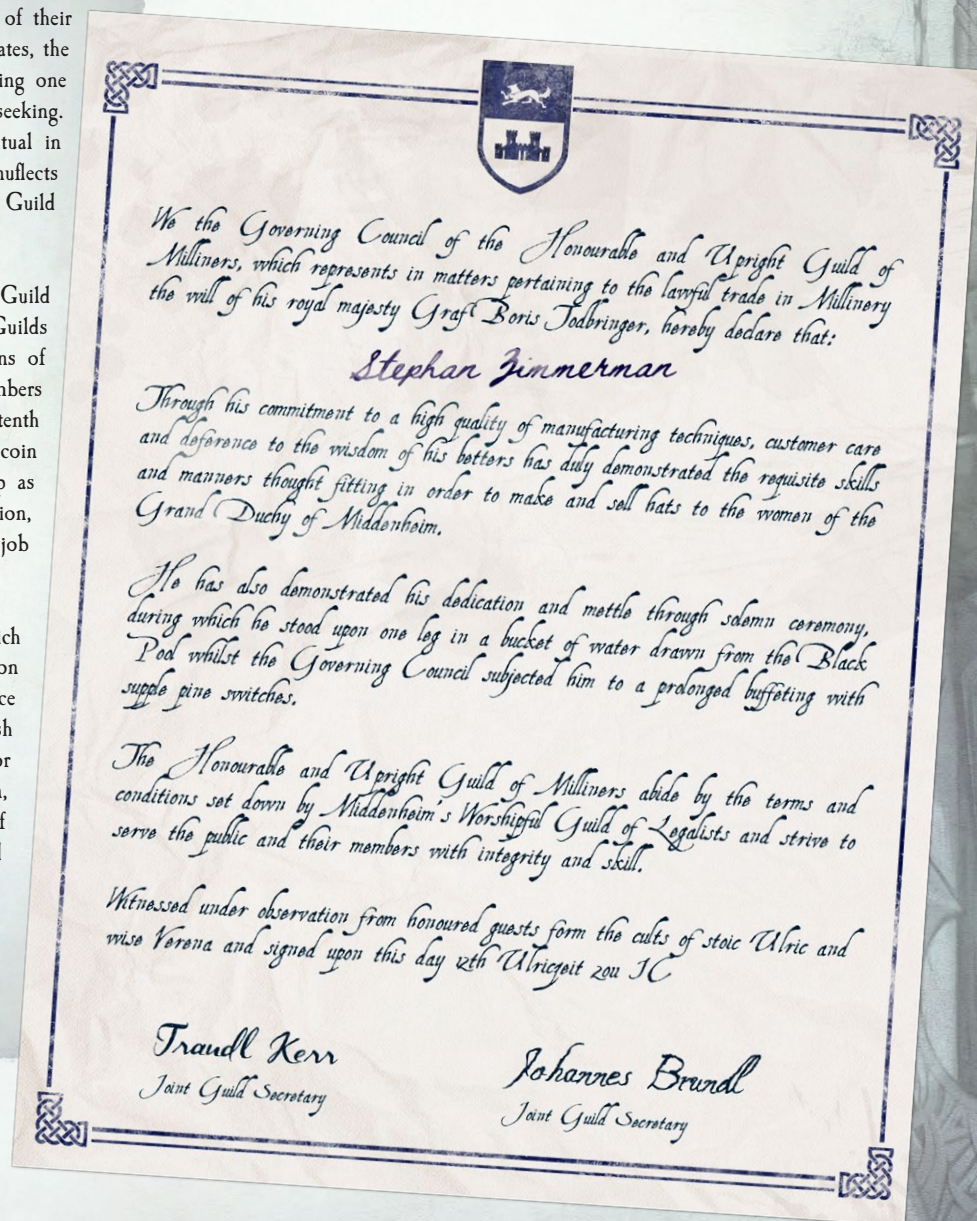 of their
ates, the
ing one
seeking.
tual in
nuflects
Guild
Guild
Guilds
ns of
nbers
tenth
coin
p as
ion,
job
ich
on
ce
sh
or
n,
f
l
We the Governing Council of the Honourable and Upright Guild of
Milliners, which represents in matters pertaining to the lawful trade in Millinery
the will of his royal majesty Graf Boris Todbringer, hereby declare that:
Stephan Zimmerman
Through his commitment to a high quality of manufacturing techniques, customer care
and deference to the wisdom of his betters has duly demonstrated the requisite skills
and manners thought fitting in order to make and sell hats to the women of the
Grand Duchy of Middenheim.
He has also demonstrated his dedication and mettle through solemn ceremony,
during which he stood upon one leg in a bucket of water drawn from the Black
Pool whilst the Governing Council subjected him to a prolonged buffeting with
supple pine switches.
The Honourable and Upright Guild of Milliners abide by the terms and
conditions set down by Middenheim's Worshipful Guild of Legalists and strive to
serve the public and their members with integrity and skill.
Witnessed under observation from honoured guests form the cults of stoic Ulric and
wise Verena and signed upon this day 12th Ulriczeit 2511 IC
Traudl Kerr
Joint Guild Secretary
Johannes Brundl
Joint Guild Secretary